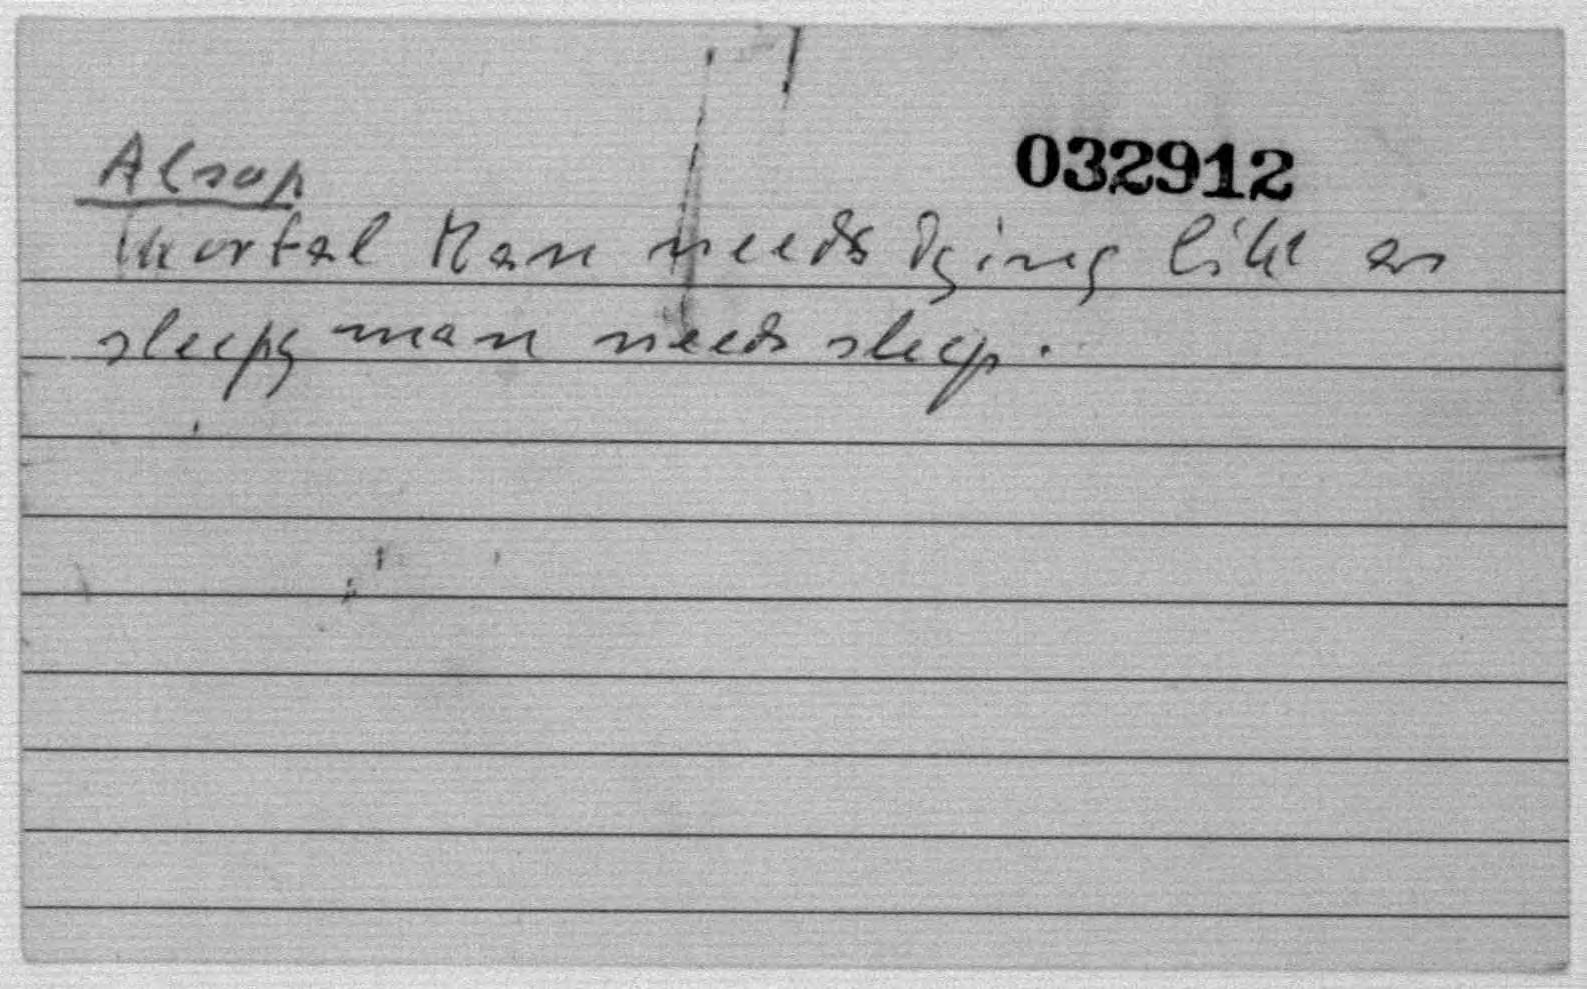 032912
Alsop
Mortal Man needs dying like a
sleepy man needs sleep.